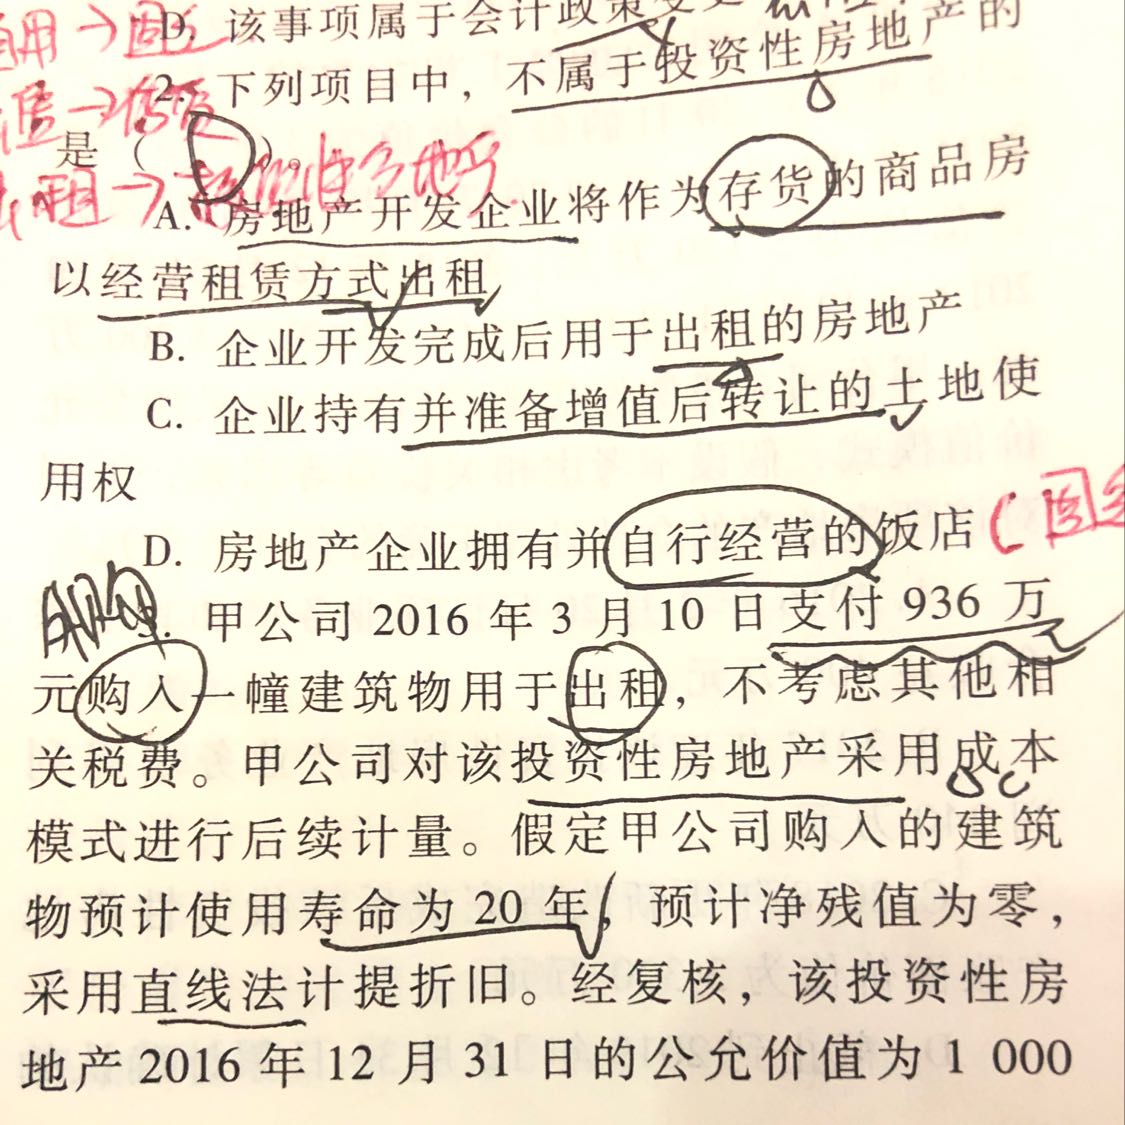 D. 该事项属于会计政策变更
自用→固定
2. 下列项目中，不属于投资性房地产的
是（D）。
出租→投资性房地产
A. 房地产开发企业将作为存货的商品房
以经营租赁方式出租
B. 企业开发完成后用于出租的房地产
C. 企业持有并准备增值后转让的土地使
用权
D. 房地产企业拥有并自行经营的饭店(固定
3. 甲公司 2016 年 3 月 10 日支付 936 万
元购入一幢建筑物用于出租，不考虑其他相
关税费。甲公司对该投资性房地产采用成本
模式进行后续计量。假定甲公司购入的建筑
物预计使用寿命为 20 年，预计净残值为零，
采用直线法计提折旧。经复核，该投资性房
地产 2016 年 12 月 31 日的公允价值为 1 000